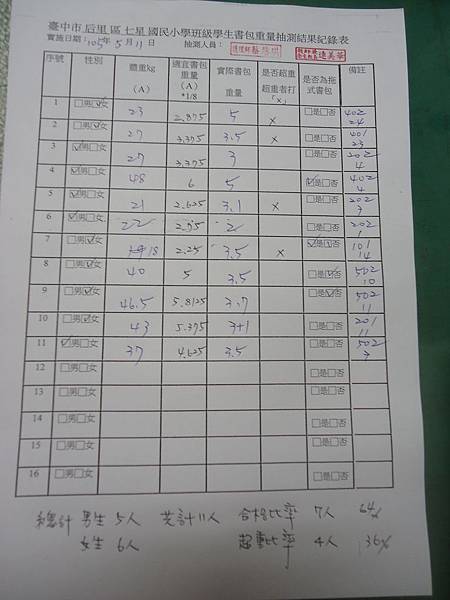 臺中市 后里 區 七星 國民小學班級學生書包重量抽測結果紀錄表
實施日期：105年 5月 11日 抽測人員：
序號 性別 體重kg (A) 適宜書包重量 (A) *1/8 實際書包重量 是否超重 超重者打「x」 是否為拖式書包 備註
1 □男☑女 23 2.875 5 □是□否 402 24
2 □男☑女 27 3.375 3.5 x □是□否 401 23
3 ☑男□女 27 3.375 3 □是□否 202 4
4 ☑男□女 48 6 5 ☑是□否 402 4
5 ☑男□女 21 2.625 3.1 x □是□否 202 3
6 ☑男□女 22 2.75 2 □是□否 202 1
7 □男☑女 18 2.25 3.5 x ☑是□否 101 14
8 □男☑女 40 5 3.5 □是☑否 502 10
9 □男☑女 46.5 5.8125 3.7 □是☑否 502 11
10 □男☑女 43 5.375 3+1 □是□否 201 11
11 ☑男□女 37 4.625 3.5 □是□否 502 3
12 □男□女 □是□否
13 □男□女 □是□否
14 □男□女 □是□否
15 □男□女 □是□否
16 □男□女 □是□否
總計 男生 5人 共計11人 合格比率 7人 64%
女生 6人 超重比率 4人 36%